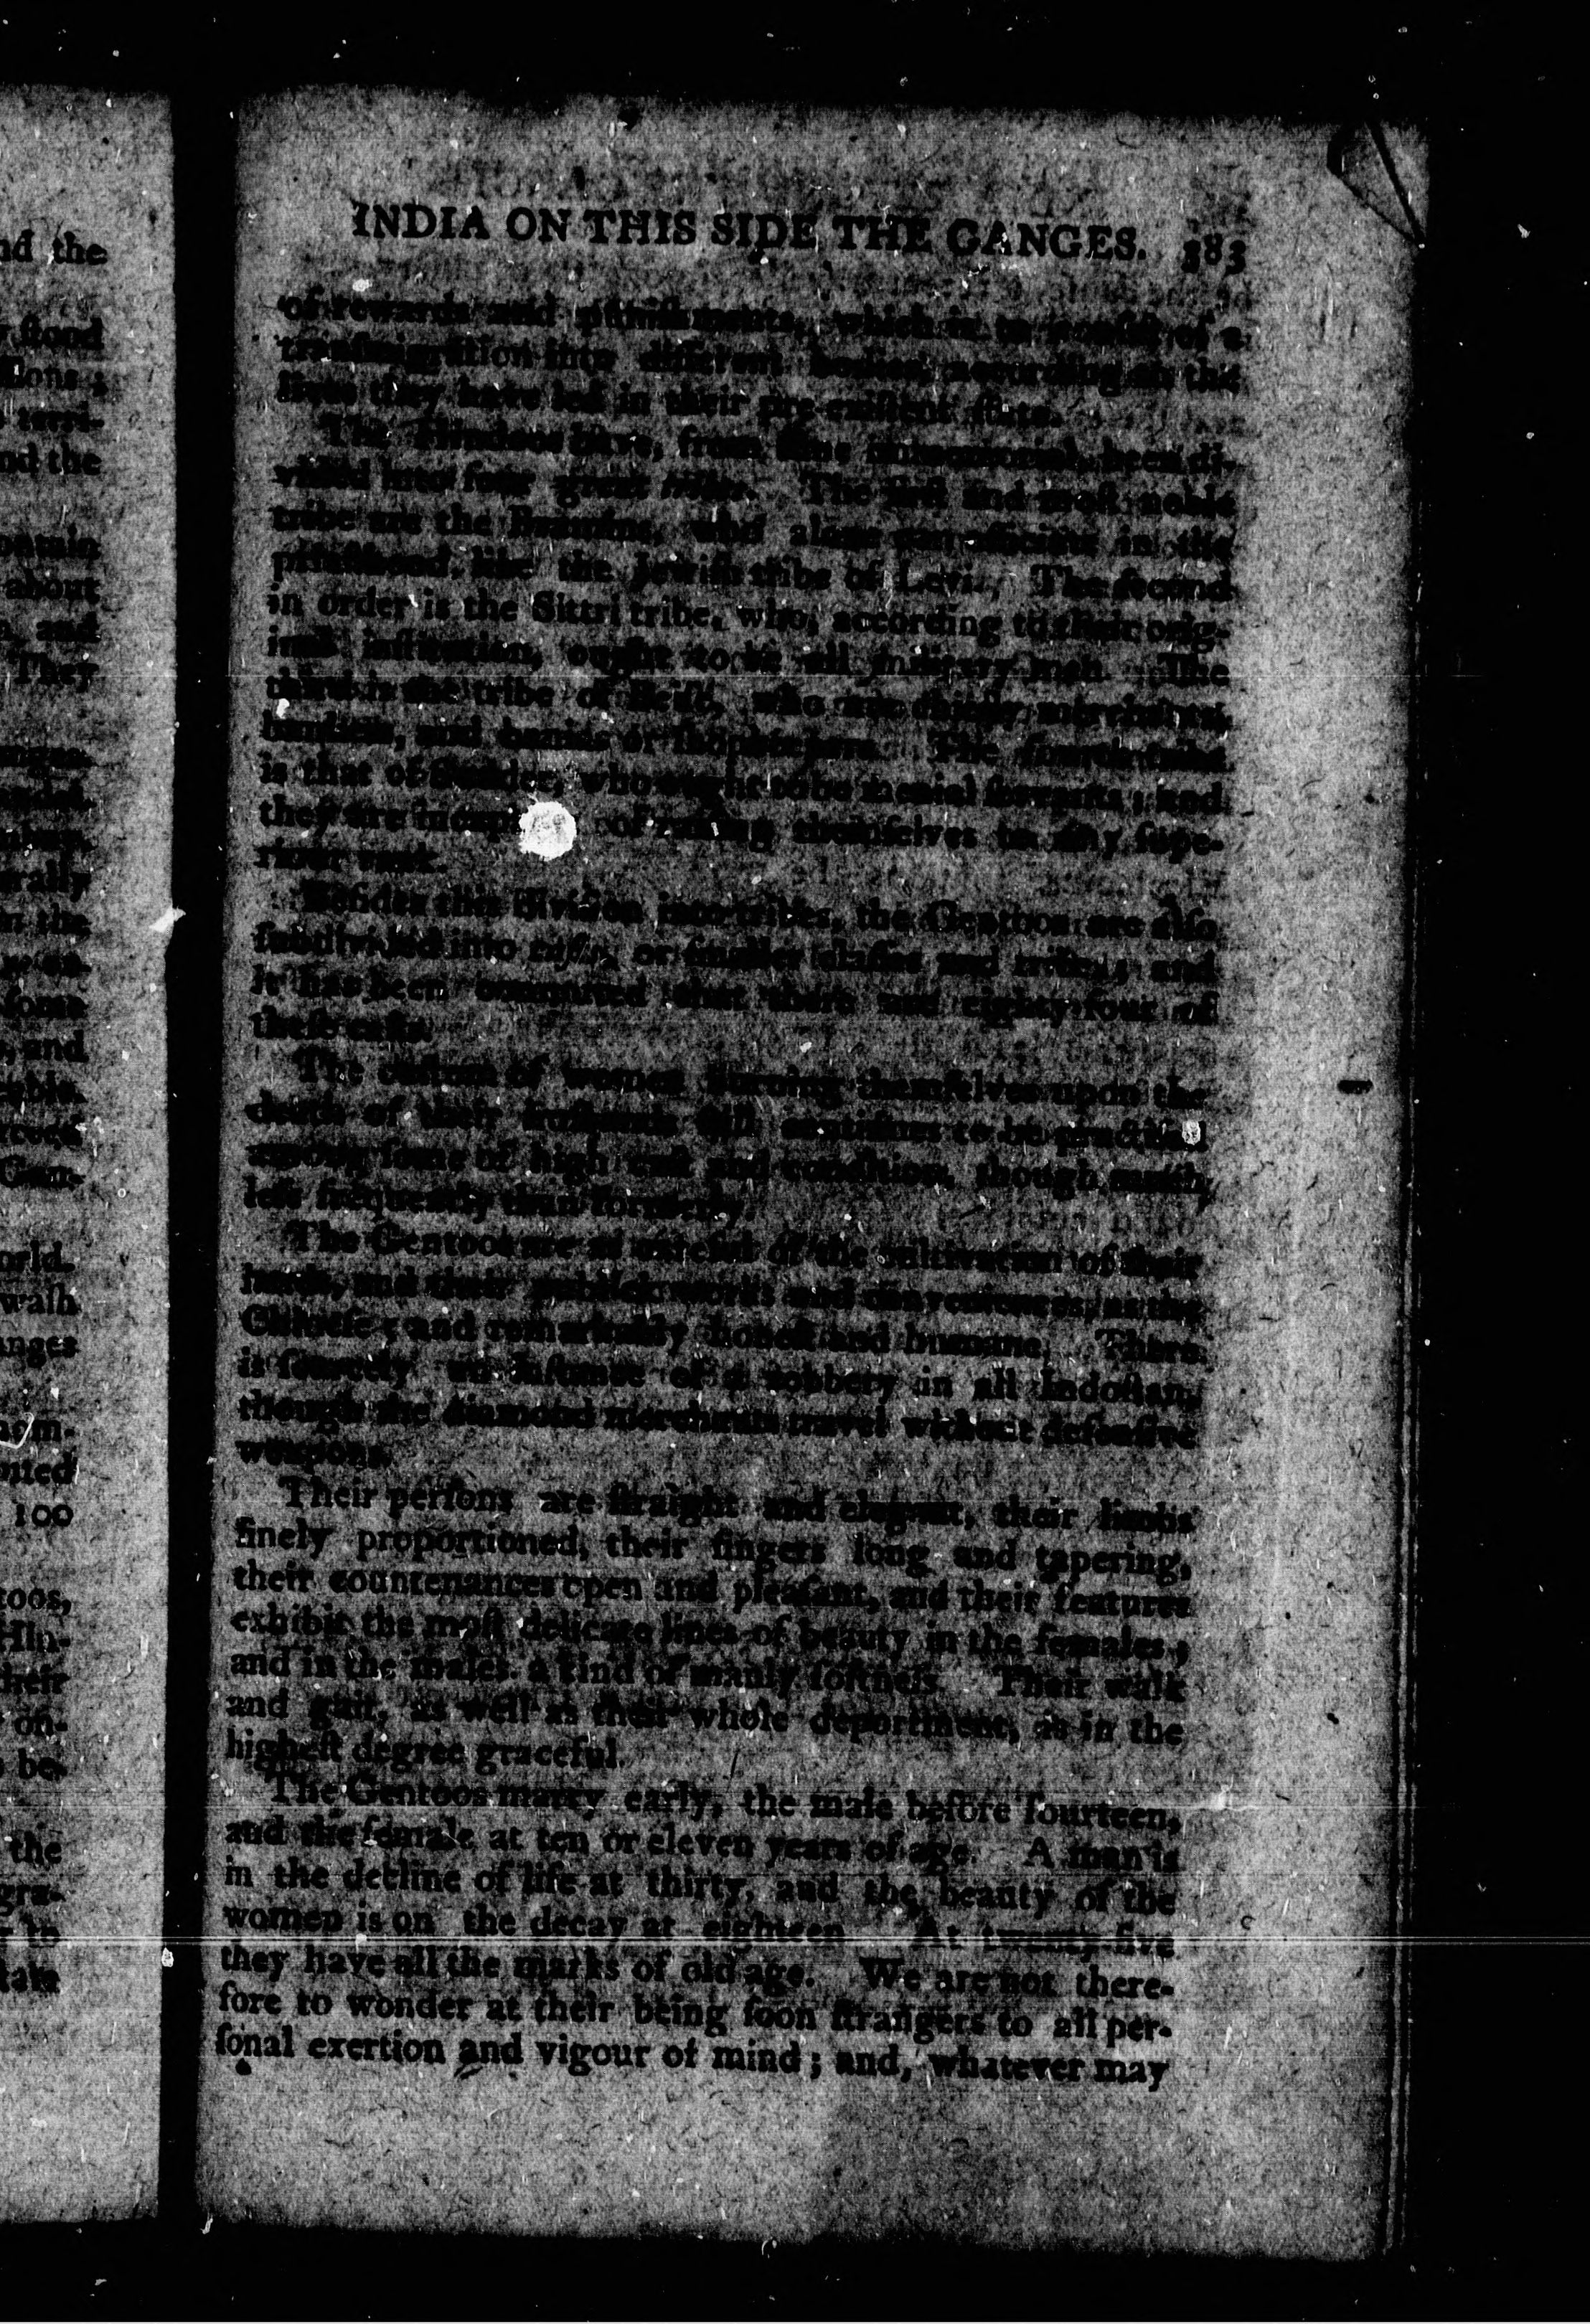 nd the
ſtood
tions;
terri-
nd the
ontain
about
and
They
rally
in the
ſome
and
Gen-
orld.
waſh
anges
100
toos,
Hin-
their
on-
be-
the
gra-
to
INDIA ON THIS SIDE THE GANGES. 383
of rewards and puniſhments, which is to conſiſt of a
tranſmigration into different bodies, according to the
lives they have led in their pre-exiſtent ſtate.
The Hindoos have, from time immemorial, been di-
vided into four great tribes. The firſt and moſt noble
tribe are the Bramins, who alone can officiate in the
prieſthood, like the Jewiſh tribe of Levi. The ſecond
in order is the Sittri tribe, who, according to their orig-
inal inſtitution, ought to be all military men. The
third is the tribe of Beiſe, who are chiefly merchants,
bankers, and banias or ſhopkeepers. The fourth tribe
is that of who ought to be menial ſervants; and
they are of raiſing themſelves to any ſupe-
riour rank.
Beſides this diviſion into tribes, the Gentoos are alſo
ſubdivided into caſts, or ſmaller claſſes and tribes; and
it has been computed that there are eighty-four of
theſe caſts.
The cuſtom of women burning themſelves upon the
death of their huſbands ſtill continues to be practiſed
among ſome of high caſt and condition, though much
leſs frequently than formerly.
The Gentoos are as careful of the cultivation of their
lands, and their publick works and conveniences, as the
Chineſe; and remarkably honeſt and humane. There
is ſcarcely an inſtance of a robbery in all Indoſtan,
though the diamond merchants travel without defenſive
weapons.
Their perſons are ſtraight and elegant, their limbs
finely proportioned, their fingers long and tapering,
their countenances open and pleaſant, and their features
exhibit the moſt delicate lines of beauty in the females;
and in the males a kind of manly ſoftneſs. Their walk
and gait, as well as their whole deportment, is in the
higheſt degree graceful.
The Gentoos marry early, the male before fourteen,
and the female at ten or eleven years of age. A man is
in the decline of life at thirty, and the beauty of the
women is on the decay at eighteen. At twenty-five
they have all the marks of old age. We are not there-
fore to wonder at their being ſoon ſtrangers to all per-
ſonal exertion and vigour of mind; and, whatever may